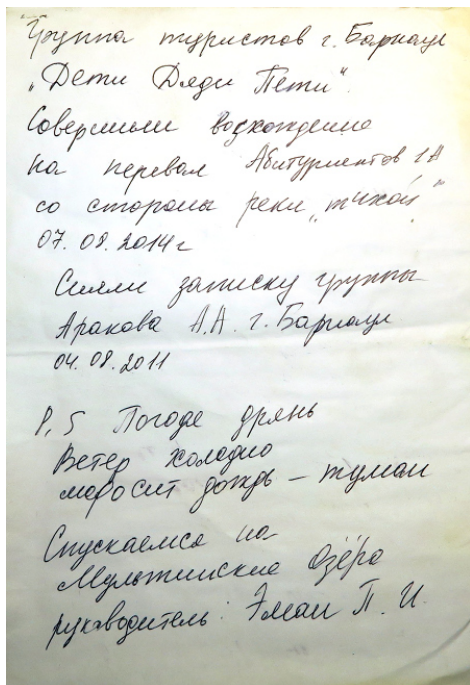 Группа туристов г. Барнаул
„Дети Дяди Пети“.
Совершили восхождение
на перевал Абитуриентов 1А
со стороны реки „тихой“
07.08.2014 г
Сняли записку группы
Аракова А.А. г. Барнаул
04.08.2011
P.S Погода дрянь
Ветер холодно
моросит дождь – туман
Спускаемся на
Мультинские озёра
руководитель: Эман П. И.